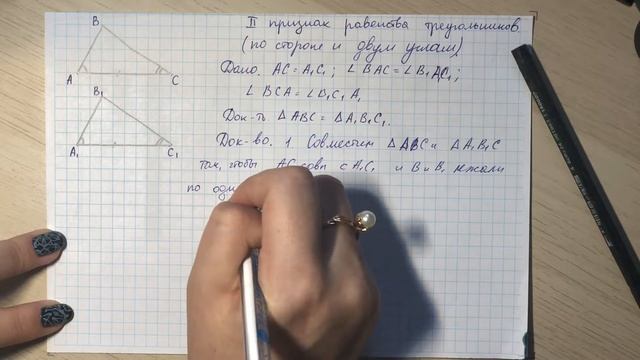 II признак равенства треугольников
(по стороне и двум углам)
Дано: AC = A₁C₁; ∠ BAC = ∠ B₁A₁C₁;
∠ BCA = ∠ B₁C₁A₁
Док-ть Δ ABC = Δ A₁B₁C₁.
Док-во. 1 Совместим Δ ABC и Δ A₁B₁C
так, чтобы AC совп с A₁C₁ и B и B₁ лежали
по одн
B
A
C
B₁
A₁
C₁